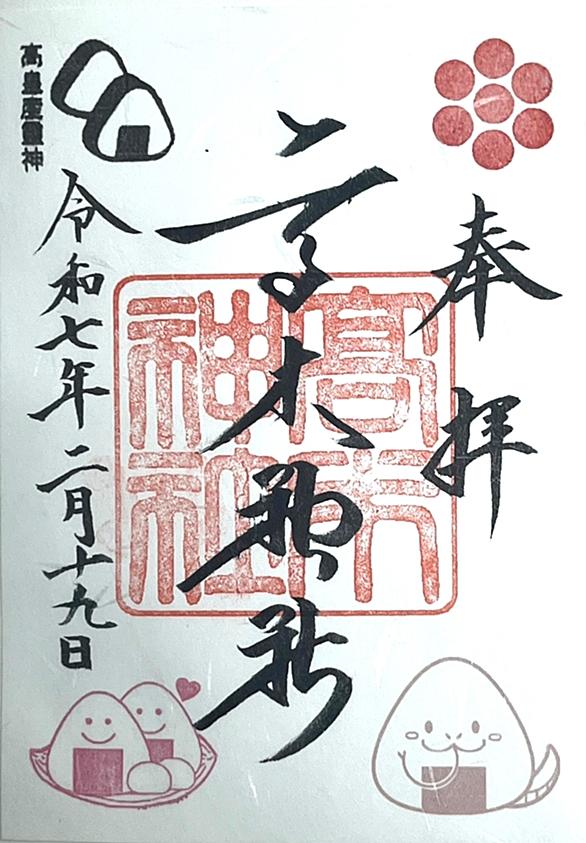 奉拝
高木神社
高木神社
令和七年二月十九日
高皇産靈神